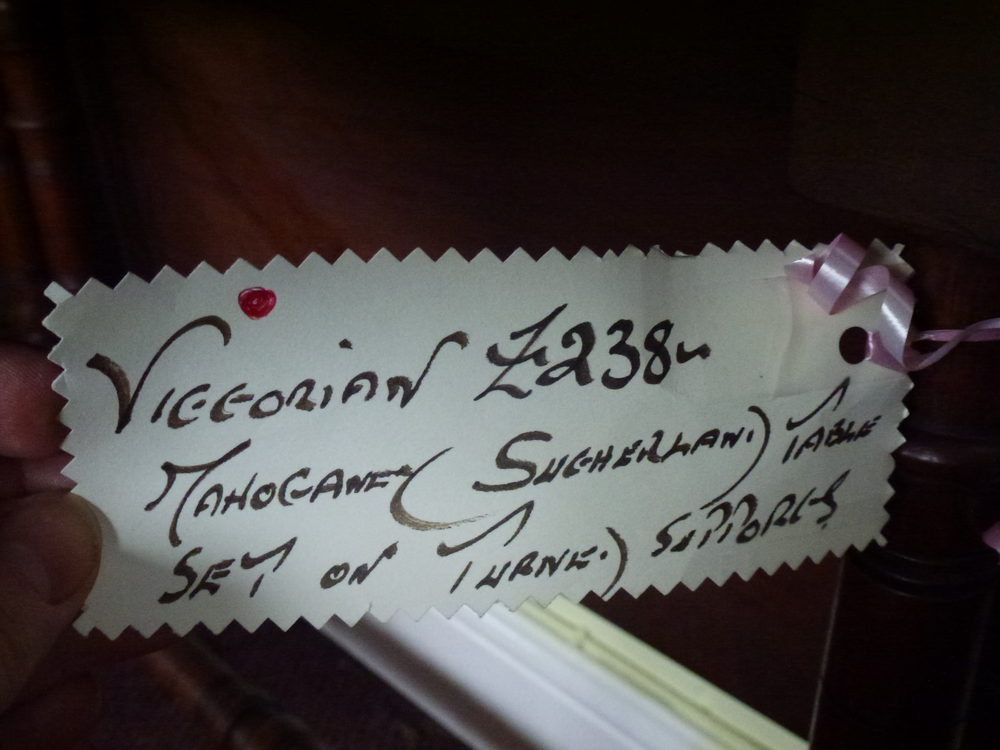 VICTORIAN £238
MAHOGANEY (SUTHERLAND) TABLE
SET ON TURNED SUPPORTS